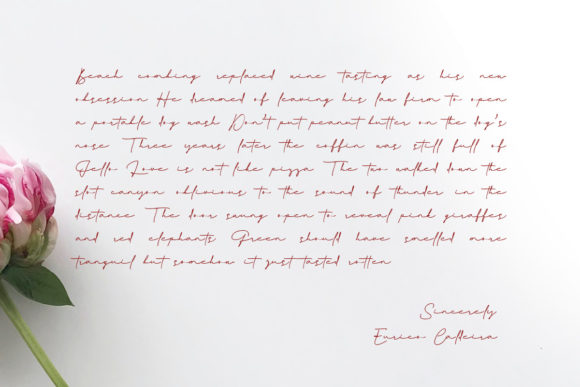 Beach combing replaced wine tasting as his new
obsession He dreamed of leaving his law firm to open
a portable dog wash Don't put peanut butter on the dog's
nose Three years later the coffin was still full of
Jello Love is not like pizza The two walked down the
slot canyon oblivious to the sound of thunder in the
distance The door swung open to reveal pink giraffes
and red elephants Green should have smelled more
tranquil but somehow it just tasted rotten
Sincerely
Eurico Caldeira